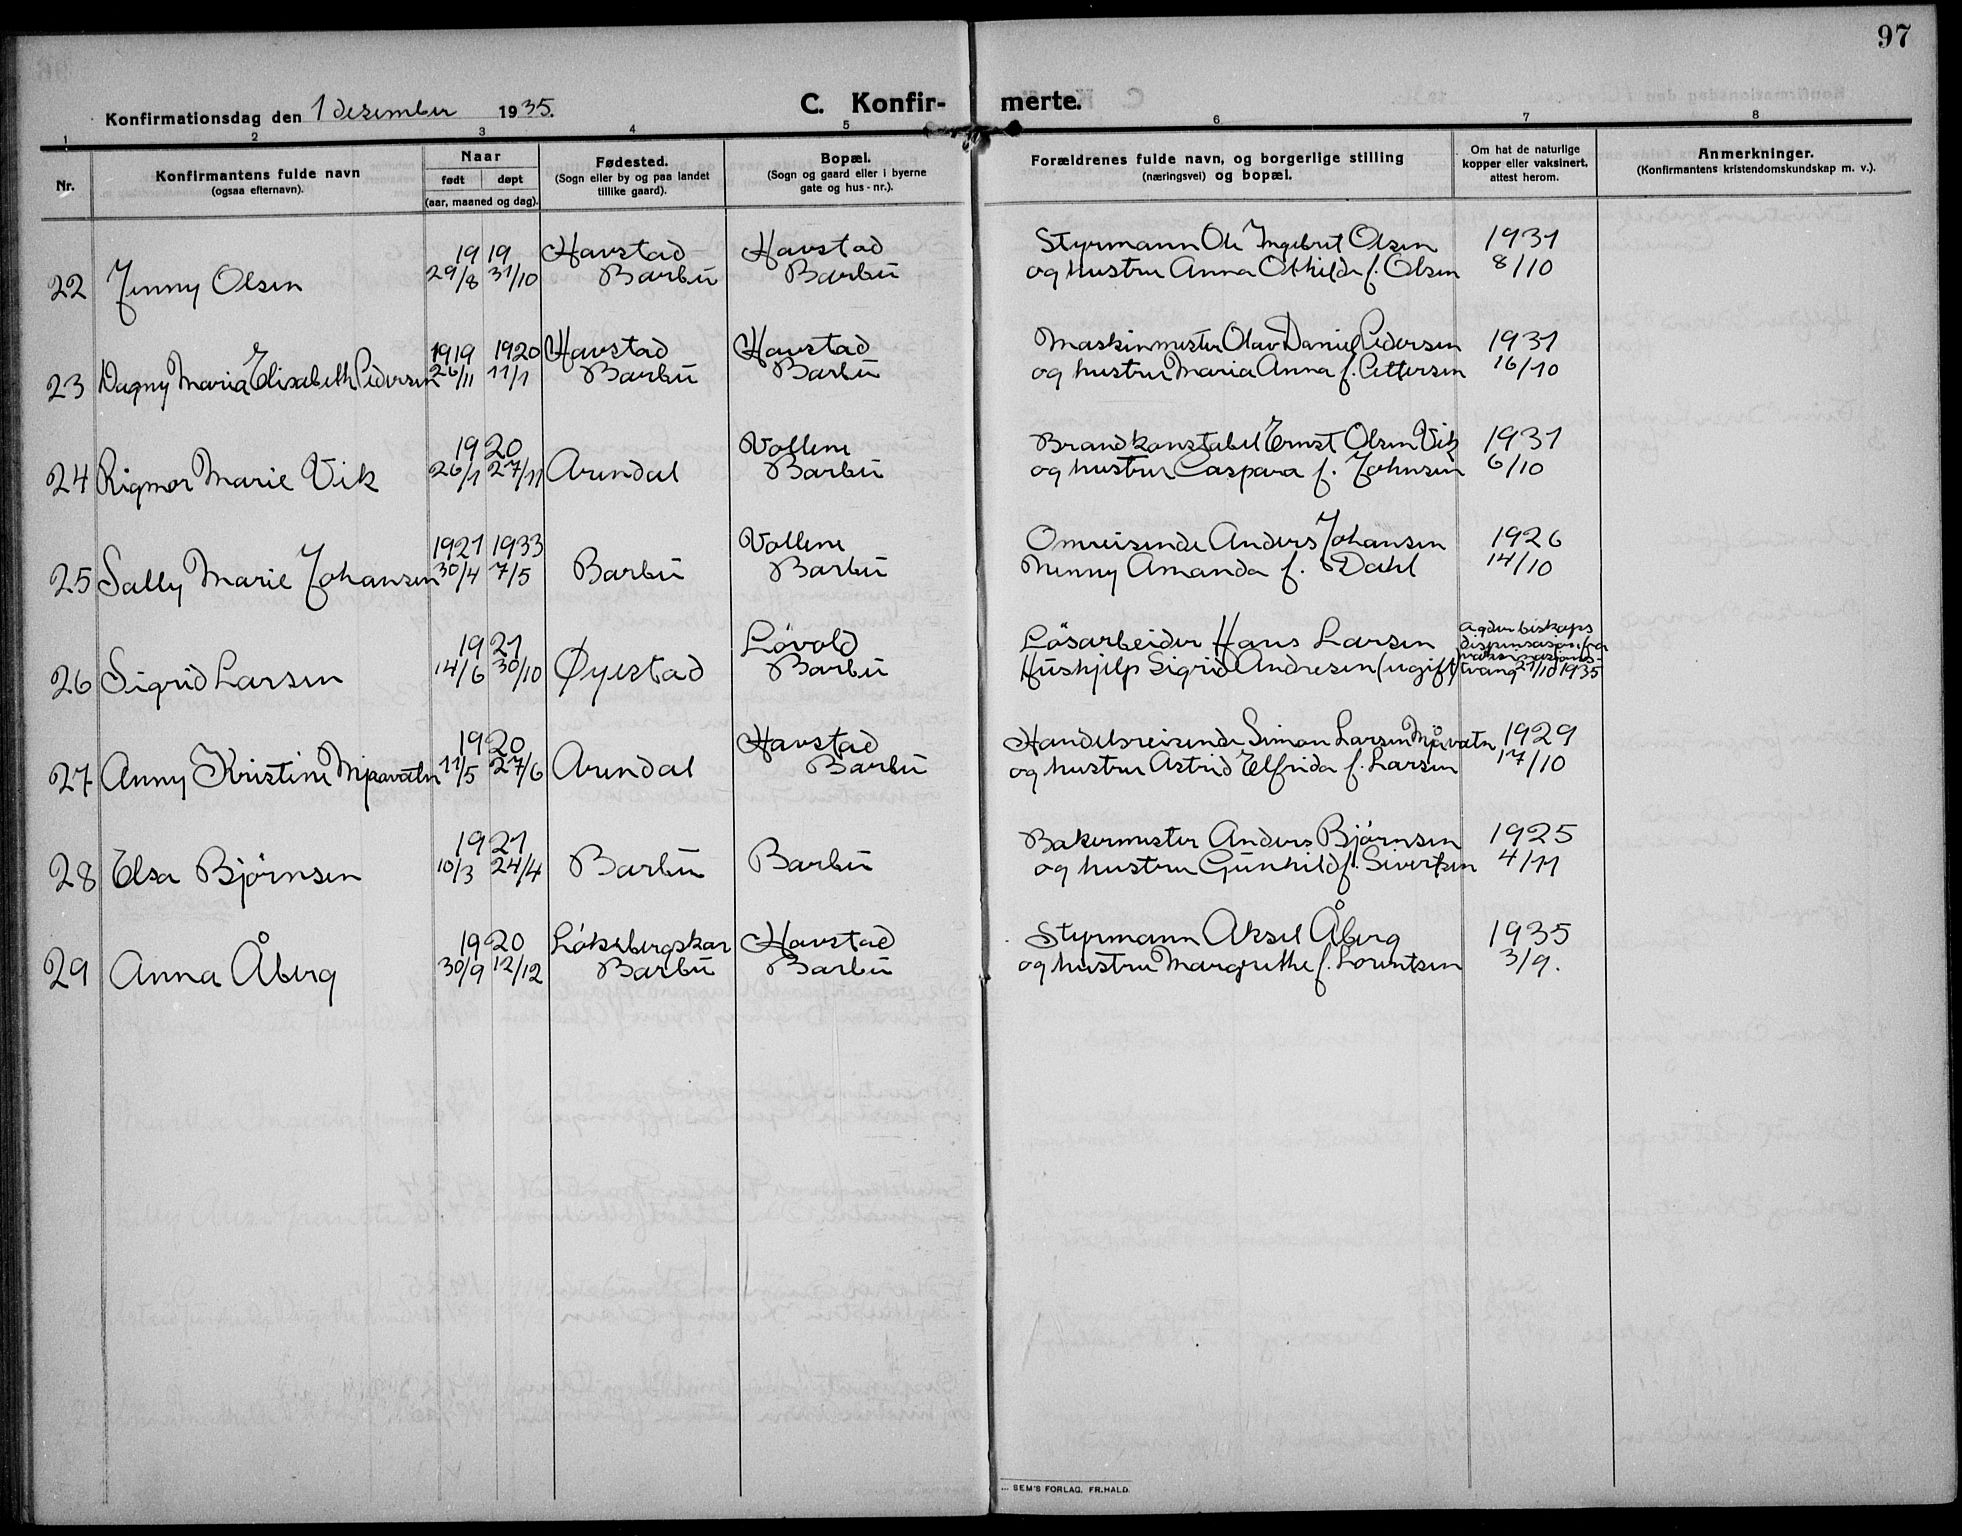 97
Konfirmationsdag den 1 desember 1935.
C. Konfir- merte.
1 2 3 4 5 6 7 8
Nr.
Konfirmantens fulde navn
(ogsaa efternavn).
Naar
født døpt
(aar, maaned og dag).
Fødested.
(Sogn eller by og paa landet
tillike gaard).
Bopæl.
(Sogn og gaard eller i byerne
gate og hus-nr.).
Forældrenes fulde navn, og borgerlige stilling
(næringsvei) og bopæl.
Om hat de naturlige
kopper eller vaksinert,
attest herom.
Anmerkninger.
(Konfirmantens kristendomskundskap m. v.).
19 19 Havstad Havstad Styrmann Ole Ingebret Olsen 1931
22 Jenny Olsen 29/8 31/10 Barbu Barbu og hustru Anna Othilde f. Olsen 8/10
1919 1920 Havstad Havstad Maskinmester Olav Daniel Pedersen 1931
23 Dagny Maria Elisabeth Pedersen 26/11 11/1 Barbu Barbu og hustru Maria Anna f. Pettersen 16/10
19 20 Vollene Brandkonstabel Ernst Olsen Vik 1931
24 Rigmor Marie Vik 26/1 27/11 Arendal Barbu og hustru Caspara f. Johnsen 6/10
1921 1933 Vollene Omreisende Anders Johansen 1926
25 Sally Marie Johansen 30/4 7/5 Barbu Barbu Nenny Amanda f. Dahl 14/10
19 21 Løvold Løsarbeider Hans Larsen Agder biskops dispensasjon fra
26 Sigrid Larsen 14/6 30/10 Øyestad Barbu Hushjelp Sigrid Andresen (ugift) tvang 21/10 1935
19 20 Havstad Handelsreisende Simon Larsen Mjåvatn 1929
27 Anny Kristine Mjaavatn 11/5 27/6 Arendal Barbu og hustru Astrid Elfrida f. Larsen 17/10
19 21 Bakermester Anders Bjørnsen 1925
28 Elsa Bjørnsen 10/3 24/4 Barbu Barbu og hustru Gunhild f. Sivertsen 4/11
19 20 Løkebergskar Havstad Styrmann Aksel Åberg 1935
29 Anna Åberg 30/9 12/12 Barbu Barbu og hustru Margrethe f. Lorentsen 3/9.
SEM'S FORLAG. FR.HALD.